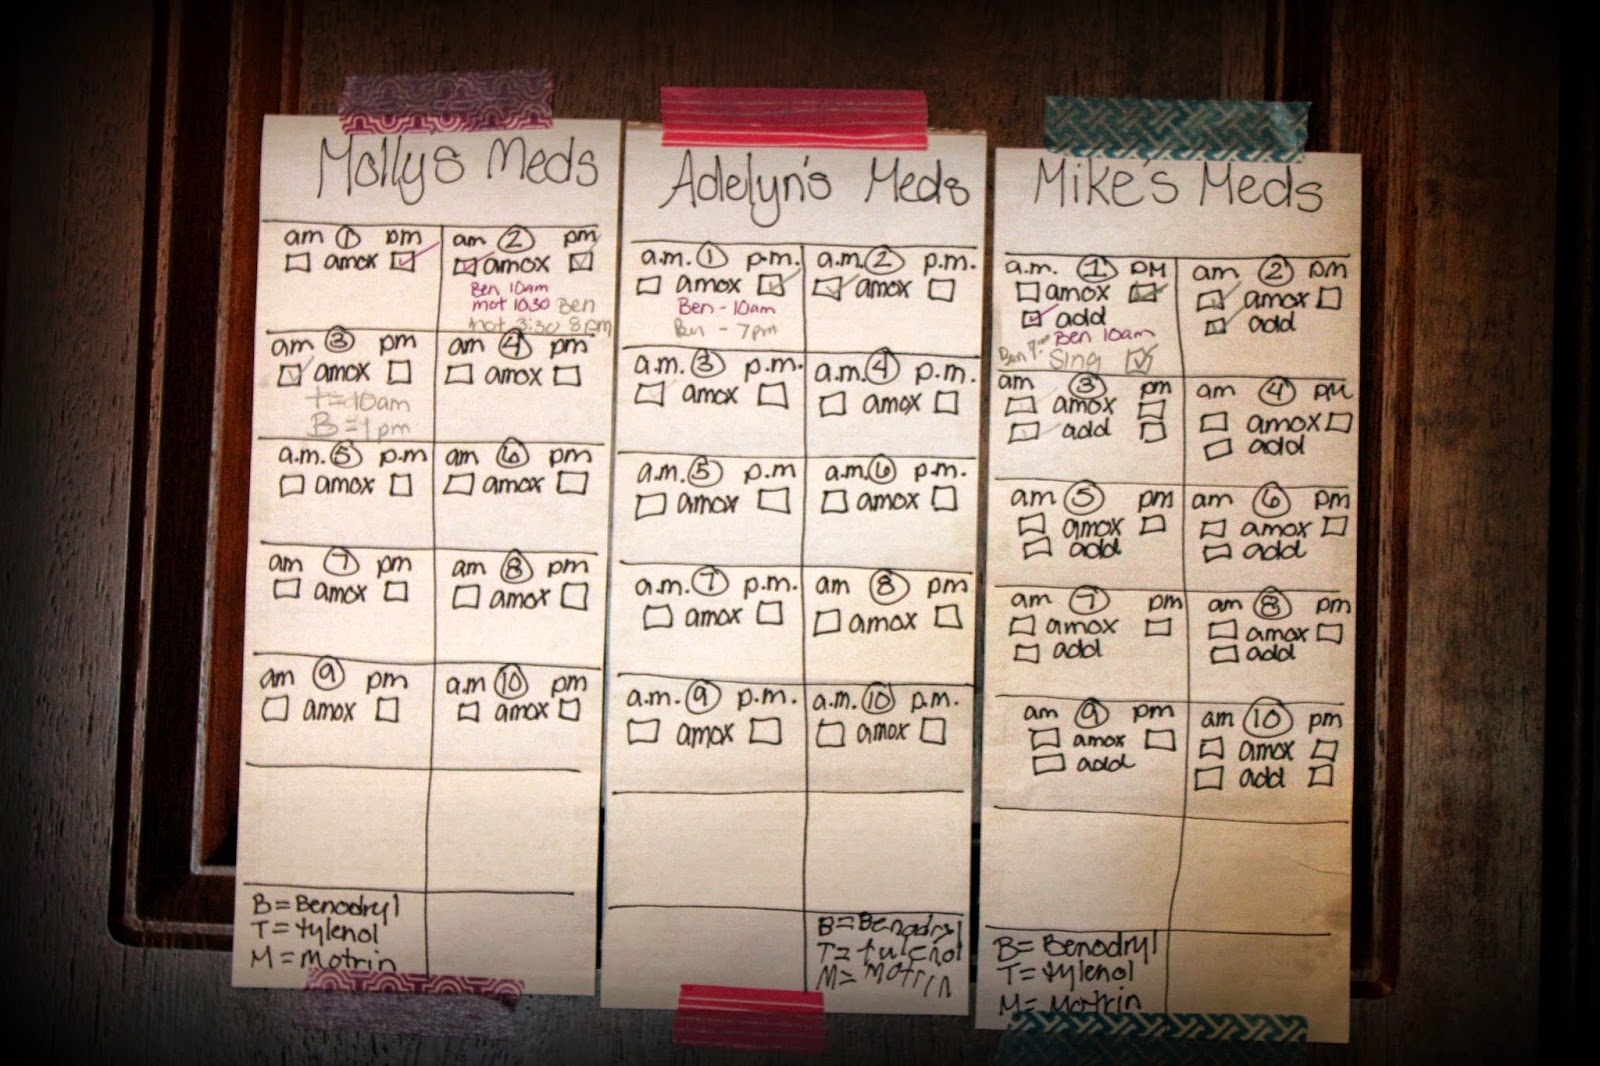 Mollys Meds
am 1 pm
amox
am 2 pm
amox
Ben 10am
mot 10:30 Ben
mot 3:30 8pm
am 3 pm
amox
T=10am
B=1pm
am 4 pm
amox
a.m. 5 p.m
amox
am 6 pm
amox
am 7 pm
amox
am 8 pm
amox
am 9 pm
amox
a.m 10 pm
amox
B=Benadryl
T=tylenol
M=Motrin
Adelyn's Meds
a.m. 1 p.m.
amox
Ben - 10am
Ben - 7pm
a.m. 2 p.m.
amox
a.m. 3 p.m.
amox
a.m. 4 p.m.
amox
a.m. 5 p.m
amox
a.m. 6 p.m.
amox
a.m. 7 p.m.
amox
am 8 pm
amox
a.m. 9 p.m.
amox
a.m. 10 p.m.
amox
B=Benadryl
T=tylenol
M=Motrin
Mike's Meds
a.m. 1 pm
amox
add
Ben 10am
Ben Sing
am 2 pm
amox
add
am 3 pm
amox
add
am 4 pm
amox
add
am 5 pm
amox
add
am 6 pm
amox
add
am 7 pm
amox
add
am 8 pm
amox
add
am 9 pm
amox
add
am 10 pm
amox
add
B=Benadryl
T=tylenol
M=Motrin